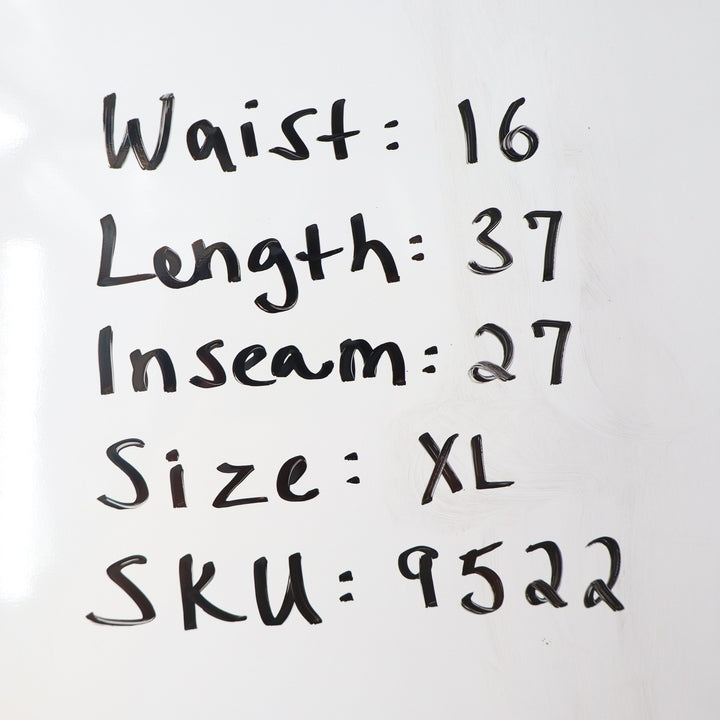 Waist: 16
Length: 37
Inseam: 27
Size: XL
SKU: 9522